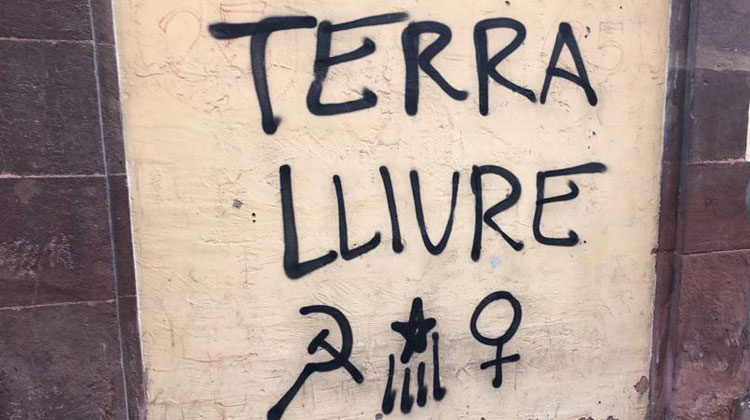 TERRA
LLIURE